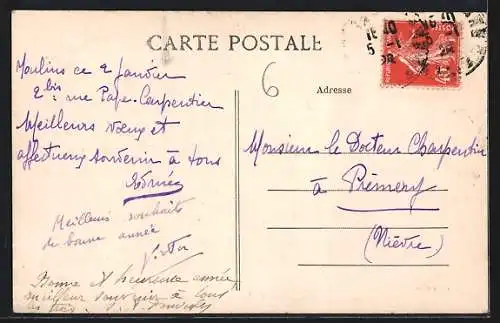 CARTE POSTALE
Adresse
6
Moulins ce 2 Janvier
2 bis rue Pape-Carpentier
Meilleurs vœux et
affectueux souvenir à tous
Monsieur le Docteur Charpentier
à Prémery
(Nièvre)
Meilleurs souhaits
de bonne année
Bonne et heureuse année
meilleur souvenir à tous